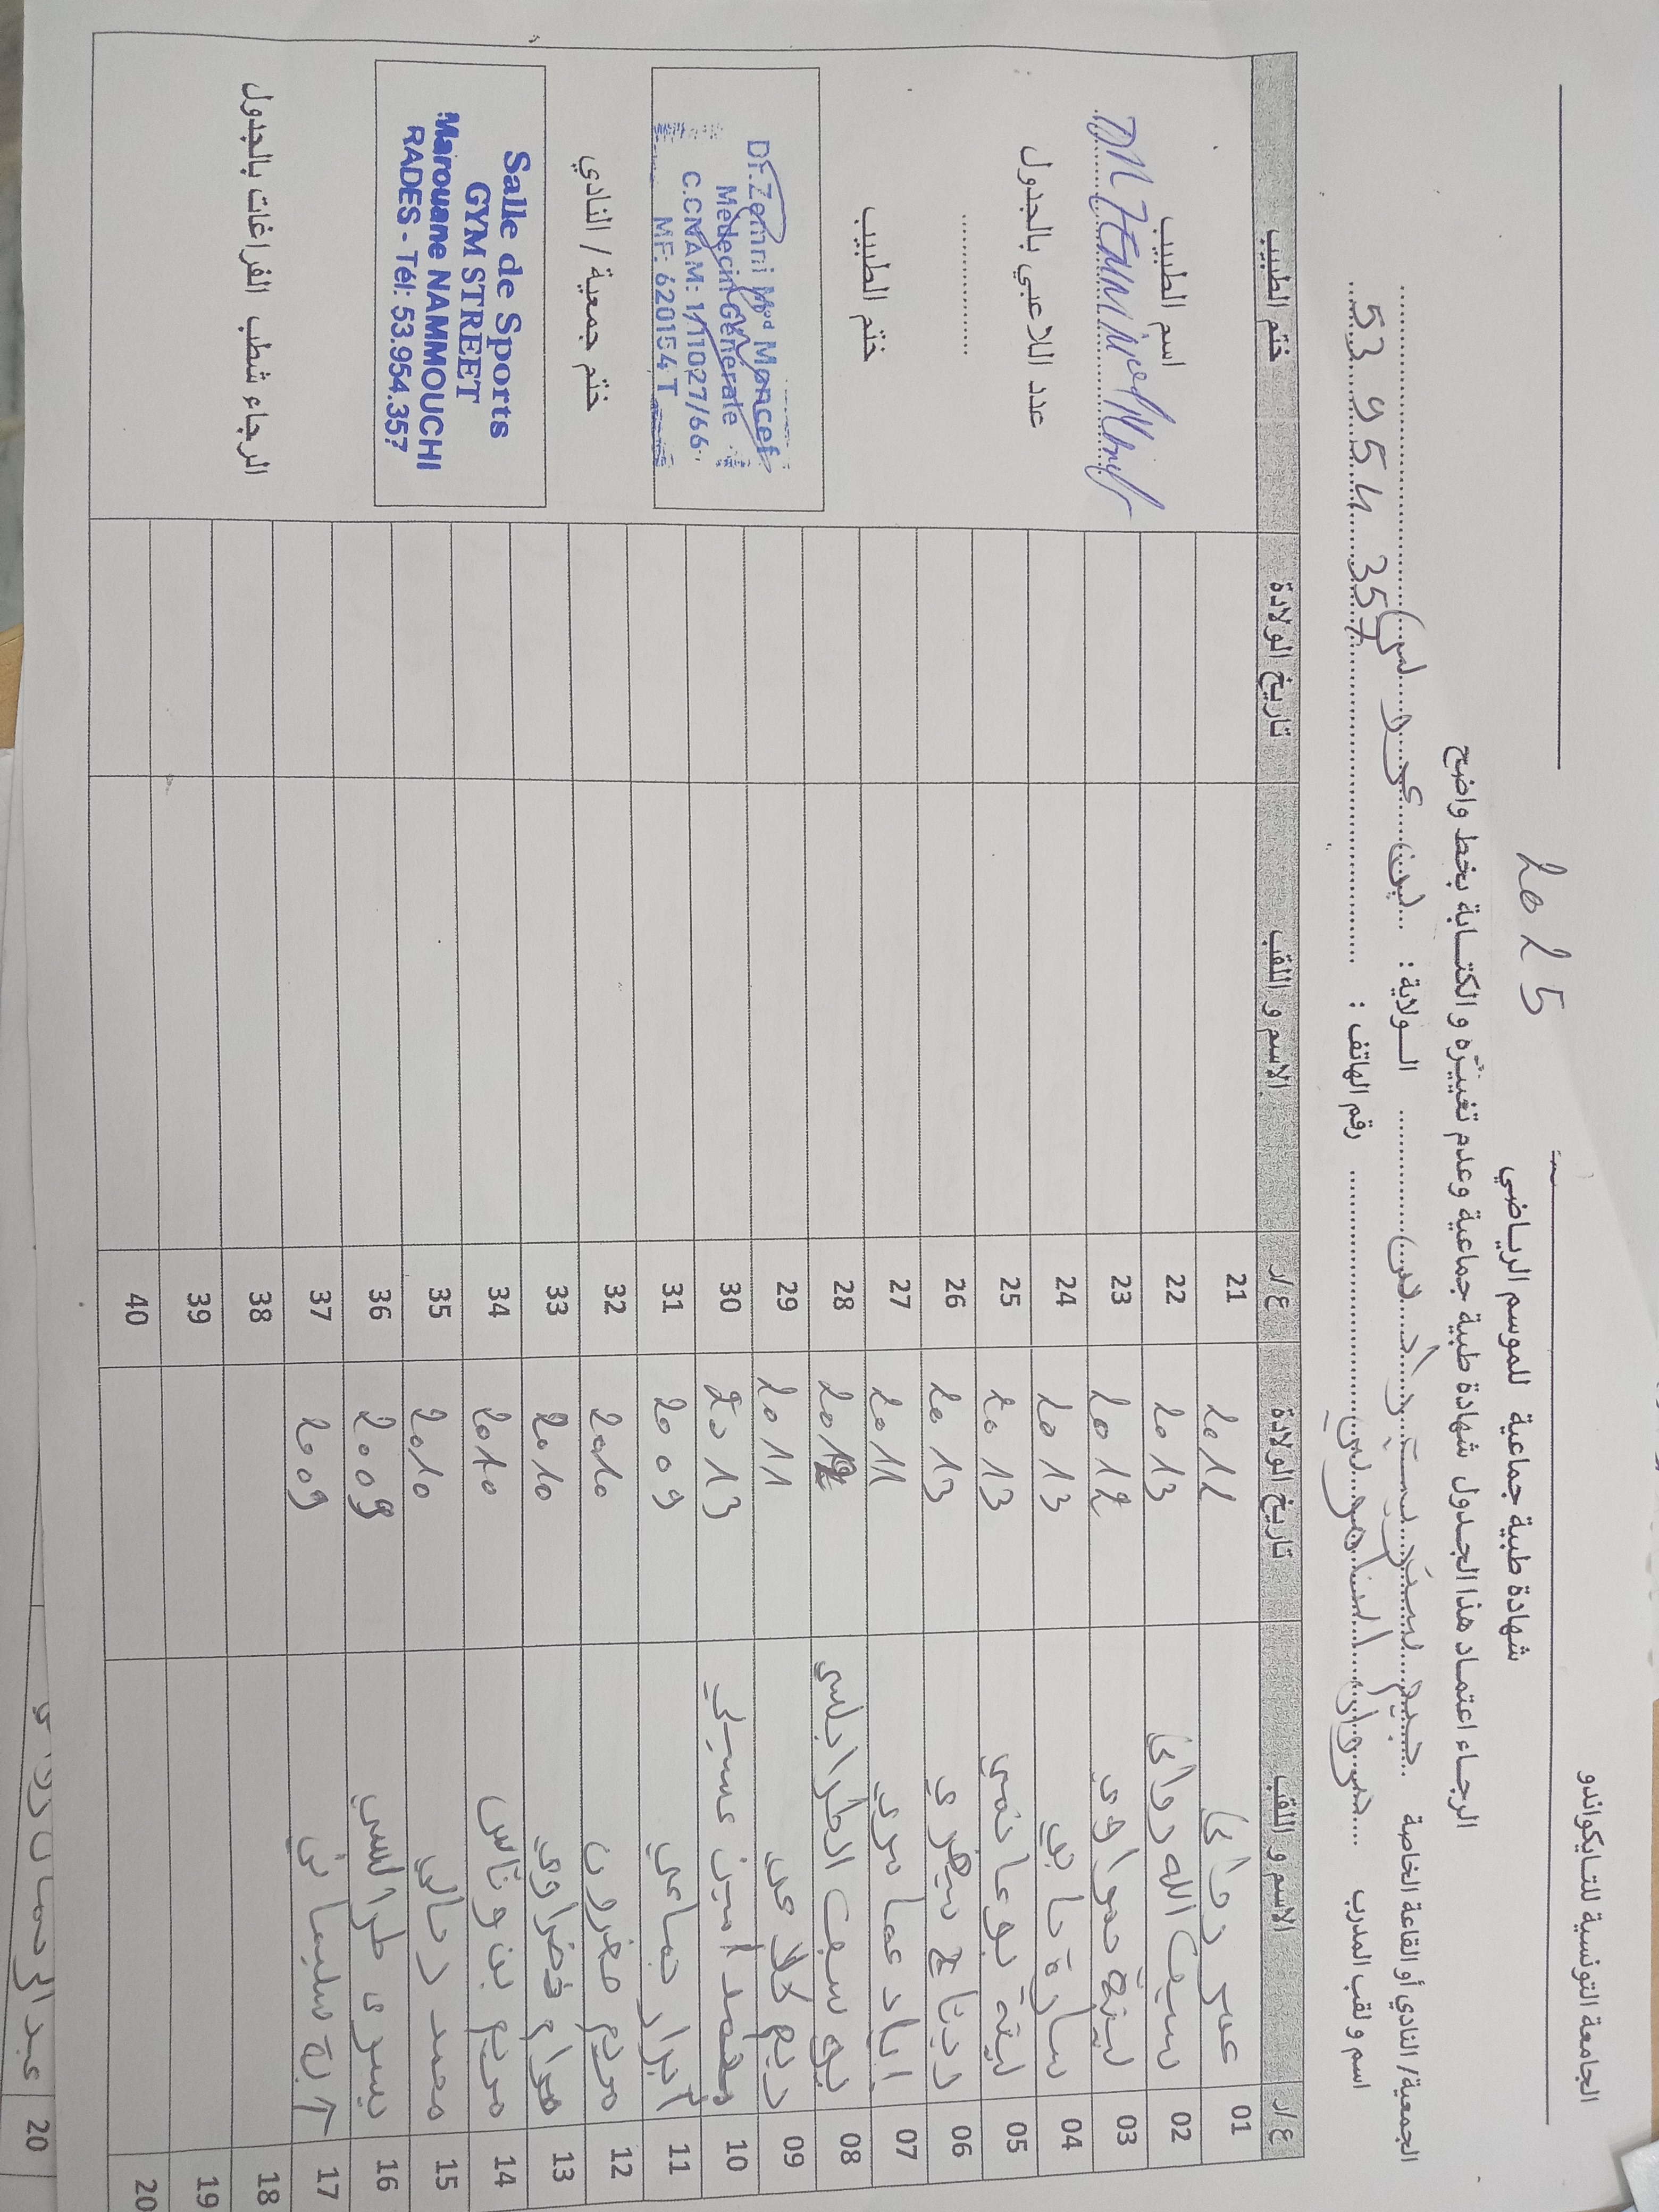 الجامعة التونسية للتايكواندو
شهادة طبية جماعية للموسم الرياضي 2025
الرجاء اعتماد هذا الجدول شهادة طبية جماعية وعدم تغييره والكتابة بخط واضح
الجمعية/ النادي أو القاعة الخاصة جيم ستريت رادس الولاية : بن عروس
اسم و لقب المدرب مروان النموشي رقم الهاتف : 53 954 357
ع/ر الاسم و اللقب تاريخ الولادة ع/ر الاسم و اللقب تاريخ الولادة ختم الطبيب
01 عمر 21
02 سيف الله 2013 22
03 لينة حمراوي 2012 23
04 سارة 2013 24
05 لينة بوعاصمي 2013 25
06 2013 26
07 اياد عماري 2011 27
08 يوسف الطرابلسي 28
09 ريم 2011 29
10 محمد امين عسيلي 2013 30
11 أبرار جماعي 2009 31
12 مريم مغرون 2010 32
13 مرام خضراوي 2010 33
14 مريم بن وناس 2010 34
15 محمد رحالي 2010 35
16 يسرى طرابلسي 2009 36
17 سليماني 2009 37
18 38
19 39
20 40
اسم الطبيب
عدد اللاعبي بالجدول
ختم الطبيب
Dr. Zemni Med Moncef
Médecin Générale
C.CNAM: 1/11027/66
MF: 620154 T
ختم جمعية / النادي
Salle de Sports
GYM STREET
Marouane NAMMOUCHI
RADES - Tél: 53.954.357
الرجاء شطب الفراغات بالجدول
20 عبد الرحمان